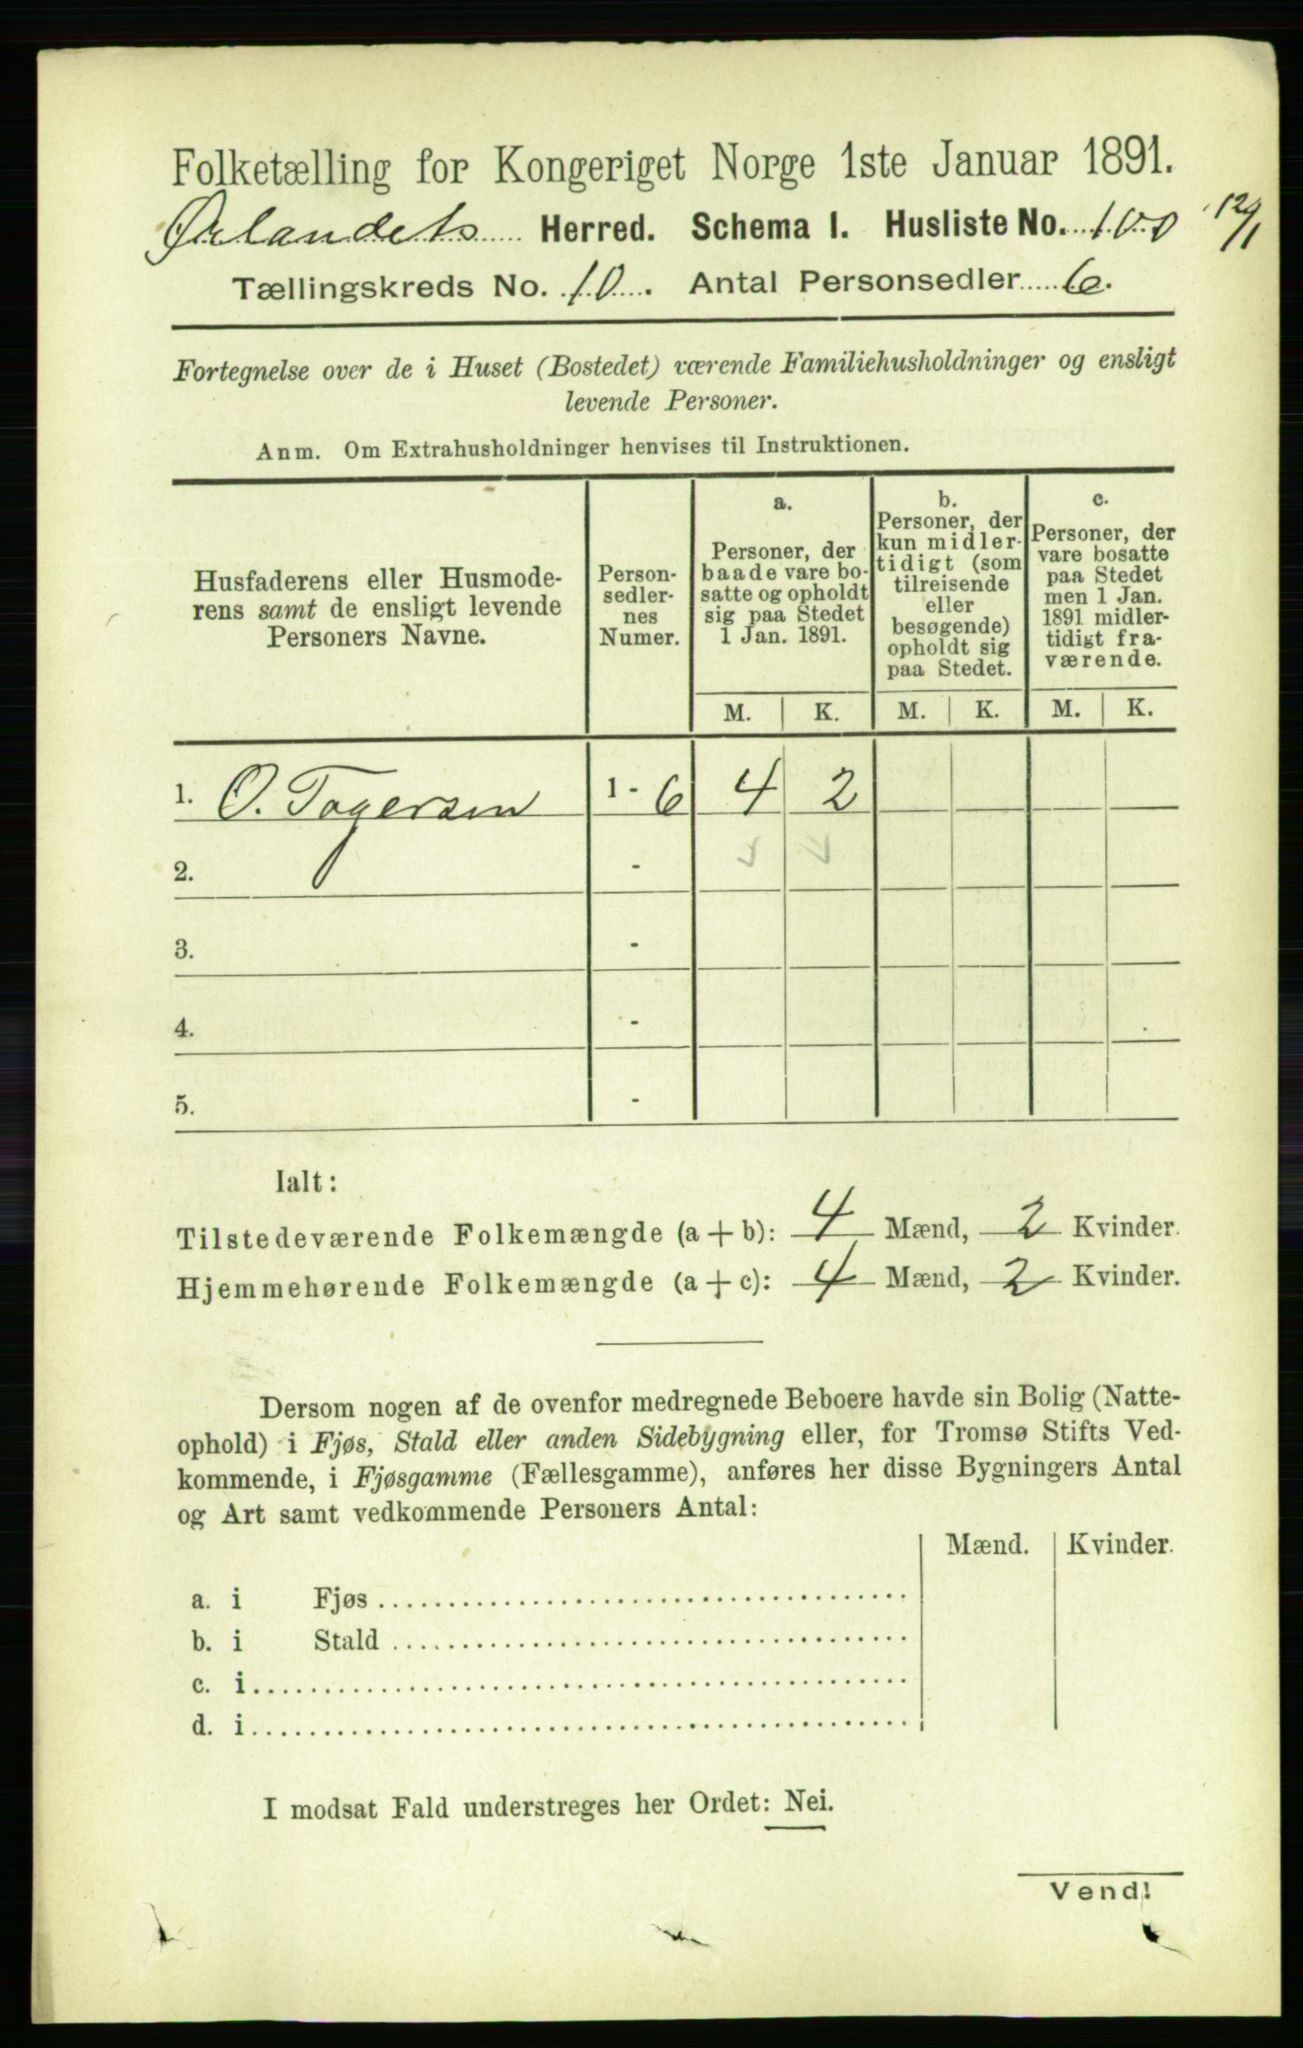 Folketælling for Kongeriget Norge 1ste Januar 1891.
Ørlandets Herred. Schema I. Husliste No. 100 12/1
Tællingskreds No. 10. Antal Personsedler 6.
Fortegnelse over de i Huset (Bostedet) værende Familiehusholdninger og ensligt
levende Personer.
Anm. Om Extrahusholdninger henvises til Instruktionen.
Husfaderens eller Husmode-
rens samt de ensligt levende
Personers Navne.
Person-
sedler-
nes
Numer.
a.
Personer, der
baade vare bo-
satte og opholdt
sig paa Stedet
1 Jan. 1891.
b.
Personer, der
kun midler-
tidigt (som
tilreisende
eller
besøgende)
opholdt sig
paa Stedet.
c.
Personer, der
vare bosatte
paa Stedet
men 1 Jan.
1891 midler-
tidigt fra-
værende.
M. K. M. K. M. K.
1. O. Togersen 1 - 6 4 2
2. -
3. -
4. -
5. -
Ialt:
Tilstedeværende Folkemængde (a + b): 4 Mænd, 2 Kvinder.
Hjemmehørende Folkemængde (a + c): 4 Mænd, 2 Kvinder.
Dersom nogen af de ovenfor medregnede Beboere havde sin Bolig (Natte-
ophold) i Fjøs, Stald eller anden Sidebygning eller, for Tromsø Stifts Ved-
kommende, i Fjøsgamme (Fællesgamme), anføres her disse Bygningers Antal
og Art samt vedkommende Personers Antal:
Mænd. Kvinder.
a. i Fjøs
b. i Stald
c. i
d. i
I modsat Fald understreges her Ordet: Nei.
Vend!